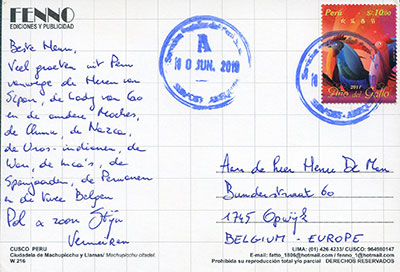 FENNO
EDICIONES Y PUBLICIDAD
Beste Menn,
Veel groeten uit Peru
vanwege de Heren van
Sipan, de Lady van Cao
en de andere Moches,
de Chimu, de Nazca,
de Uros-indianen, de
Wari, de Inca's, de
Spanjaarden, de Peruvianen
en de twee Belgen
Pol & zoon Stijn
Vermeiren
CUSCO PERU
Ciudadela de Machupicchu y Llamas/ Machupicchu citadel
W 216
A
10 JUN. 2018
Perú
S/. 10.00
2017
Año del Gallo
Aan de heer Menn De Man
Bunderstraat 60
1745 Opwijk
BELGIUM - EUROPE
LIMA: (01) 426 4233/ CUSCO: 964980147
E-mail: fatto_1806@hotmail.com / fenno_1@hotmail.com
Prohibida su reproducción total y/o parcial DERECHOS RESERVADOS